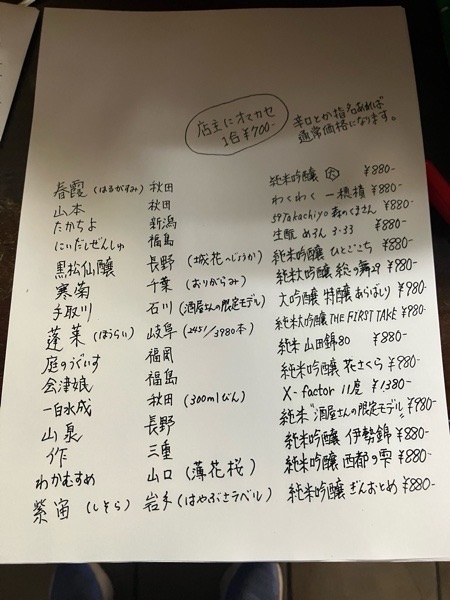 店主にオマカセ
1合¥700-
辛口とか指名あれば
通常価格になります。
春霞 (はるがすみ) 秋田 純米吟醸 ¥880-
山本 秋田 わくわく 一穂積 ¥880-
たかちよ 新潟 59Takachiyo 森のくまさん ¥880-
にいだしぜんしゅ 福島 生酛 めろん 3.33 ¥880-
黒松仙醸 長野 (城花へじょうか) 純米吟醸 ひとごこち ¥880-
寒菊 千葉 (おりがらみ) 純米大吟醸 総の舞29 ¥980-
手取川 石川 (酒屋さんの限定モデル) 大吟醸 特醸あらばしり ¥980-
蓬莱 (ほうらい) 岐阜 (2451/3980本) 純米大吟醸 THE FIRST TAKE ¥980-
庭のうぐいす 福岡 純米 山田錦80 ¥880-
会津娘 福島 純米吟醸 花さくら ¥980-
一白水成 秋田 (300mlびん) X-factor 11度 ¥1380-
山泉 長野 純米"酒屋さんの限定モデル" ¥980-
作 三重 純米吟醸 伊勢錦 ¥880-
わかむすめ 山口 (薄花桜) 純米吟醸 西都の雫 ¥880-
紫宙 (しそら) 岩手 (はやぶさラベル) 純米吟醸 ぎんおとめ ¥880-